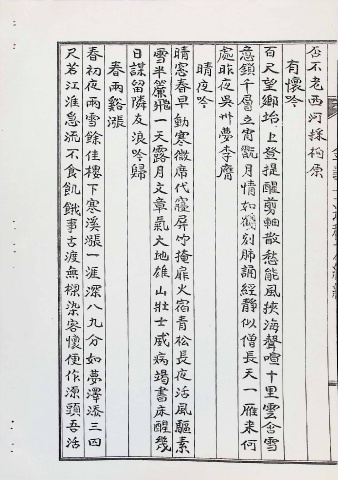 否不老西河採枸原
有懷吟
百尺望鄉坮上登提醒剪軸散愁能風挾海聲喧十里雲含雪
意鎖千層立宵翫月情如鶴刻肺誦經靜似僧長天一雁來何
處昨夜吳州夢李膺
晴夜吟
晴窓春早動寒微席代寢屏竹掩扉火宿青松長夜活風驅素
雪半簾飛一天露月文章氣大地雄山壯士威病竭書床醒幾
日謀留隣友浪吟歸
春雨谿漲
春初夜雨雪餘佳樓下寒溪漲一涯深八九分如夢澤添三四
尺若江淮急流不食飢餓事古渡無樑染客懷便作源頭吾活